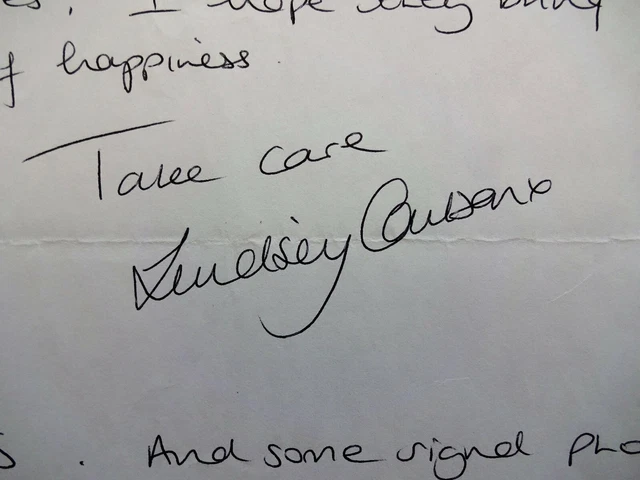 I hope they bring
of happiness
Take care
Lindsey Coulson x
S. And some signed pho